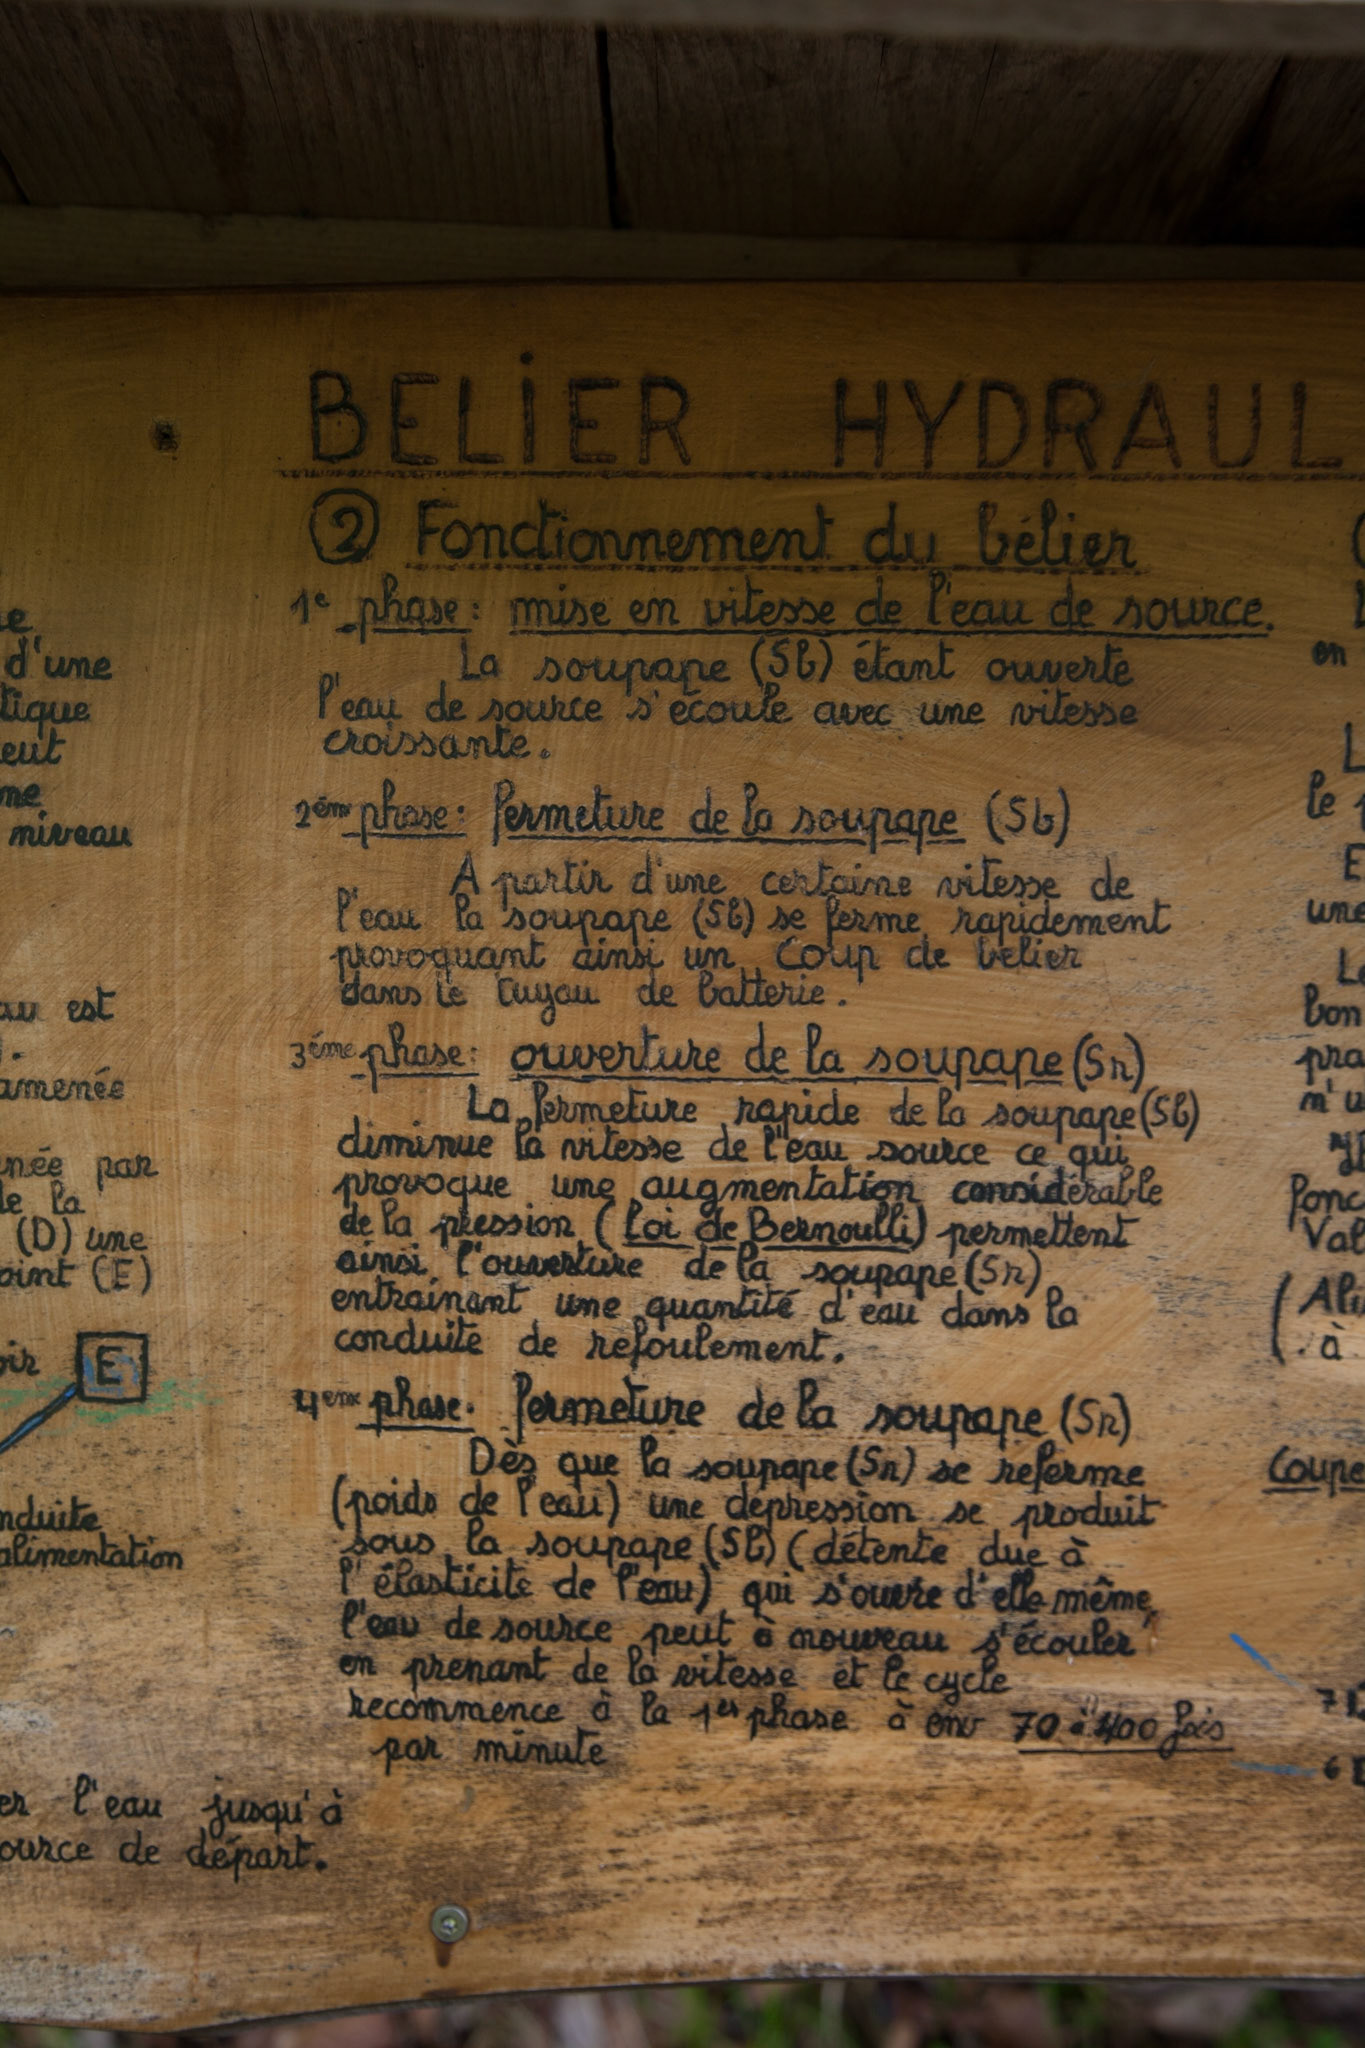 BELiER HYDRAUL
② Fonctionnement du bélier
1e phase: mise en vitesse de l'eau de source.
La soupape (Sb) étant ouverte
l'eau de source s'écoule avec une vitesse
croissante.
2ème phase: fermeture de la soupape (Sb)
A partir d'une certaine vitesse de
l'eau la soupape (Sb) se ferme rapidement
provoquant ainsi un Coup de bélier
dans le tuyau de batterie.
3ème phase: ouverture de la soupape (Sr)
La fermeture rapide de la soupape (Sb)
diminue la vitesse de l'eau source ce qui
provoque une augmentation considérable
de la pression (loi de Bernoulli) permettent
ainsi l'ouverture de la soupape (Sr)
entrainant une quantité d'eau dans la
conduite de refoulement.
4eme phase. fermeture de la soupape (Sr)
Dès que la soupape (Sr) se referme
(poids de l'eau) une depression se produit
sous la soupape (Sb) (détente due à
l'élasticite de l'eau) qui s'ouvre d'elle même,
l'eau de source peut à nouveau s'écouler
en prenant de la vitesse et le cycle
recommence à la 1er phase à env 70 à 400 fois
par minute
d'une
tique
eut
me
niveau
au est
amenée
née par
de la
(D) une
oint (E)
oir E
nduite
alimentation
er l'eau jusqu'à
ource de départ.
en
L
le
E
une
bon
pra
Val
(Ali
à
Coupe
7
6